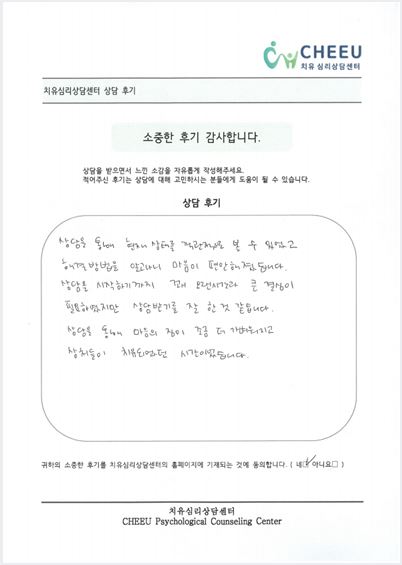 CHEEU
치유 심리상담센터
치유심리상담센터 상담 후기
소중한 후기 감사합니다.
상담을 받으면서 느낀 소감을 자유롭게 작성해주세요.
적어주신 후기는 상담에 대해 고민하시는 분들에게 도움이 될 수 있습니다.
상담 후기
상담을 통해 현재 상태를 객관적으로 볼 수 있었고
해결방법을 알고나니 마음이 편안해졌습니다.
상담을 시작하기까지 꽤 오랜시간과 큰 결심이
필요하였지만 상담받기를 잘 한 것 같습니다.
상담을 통해 마음의 짐이 조금 더 가벼워지고
상처들이 치유되었던 시간이었습니다.
귀하의 소중한 후기를 치유심리상담센터의 홈페이지에 기재되는 것에 동의합니다. ( 네☑ 아니요□ )
치유심리상담센터
CHEEU Psychological Counseling Center